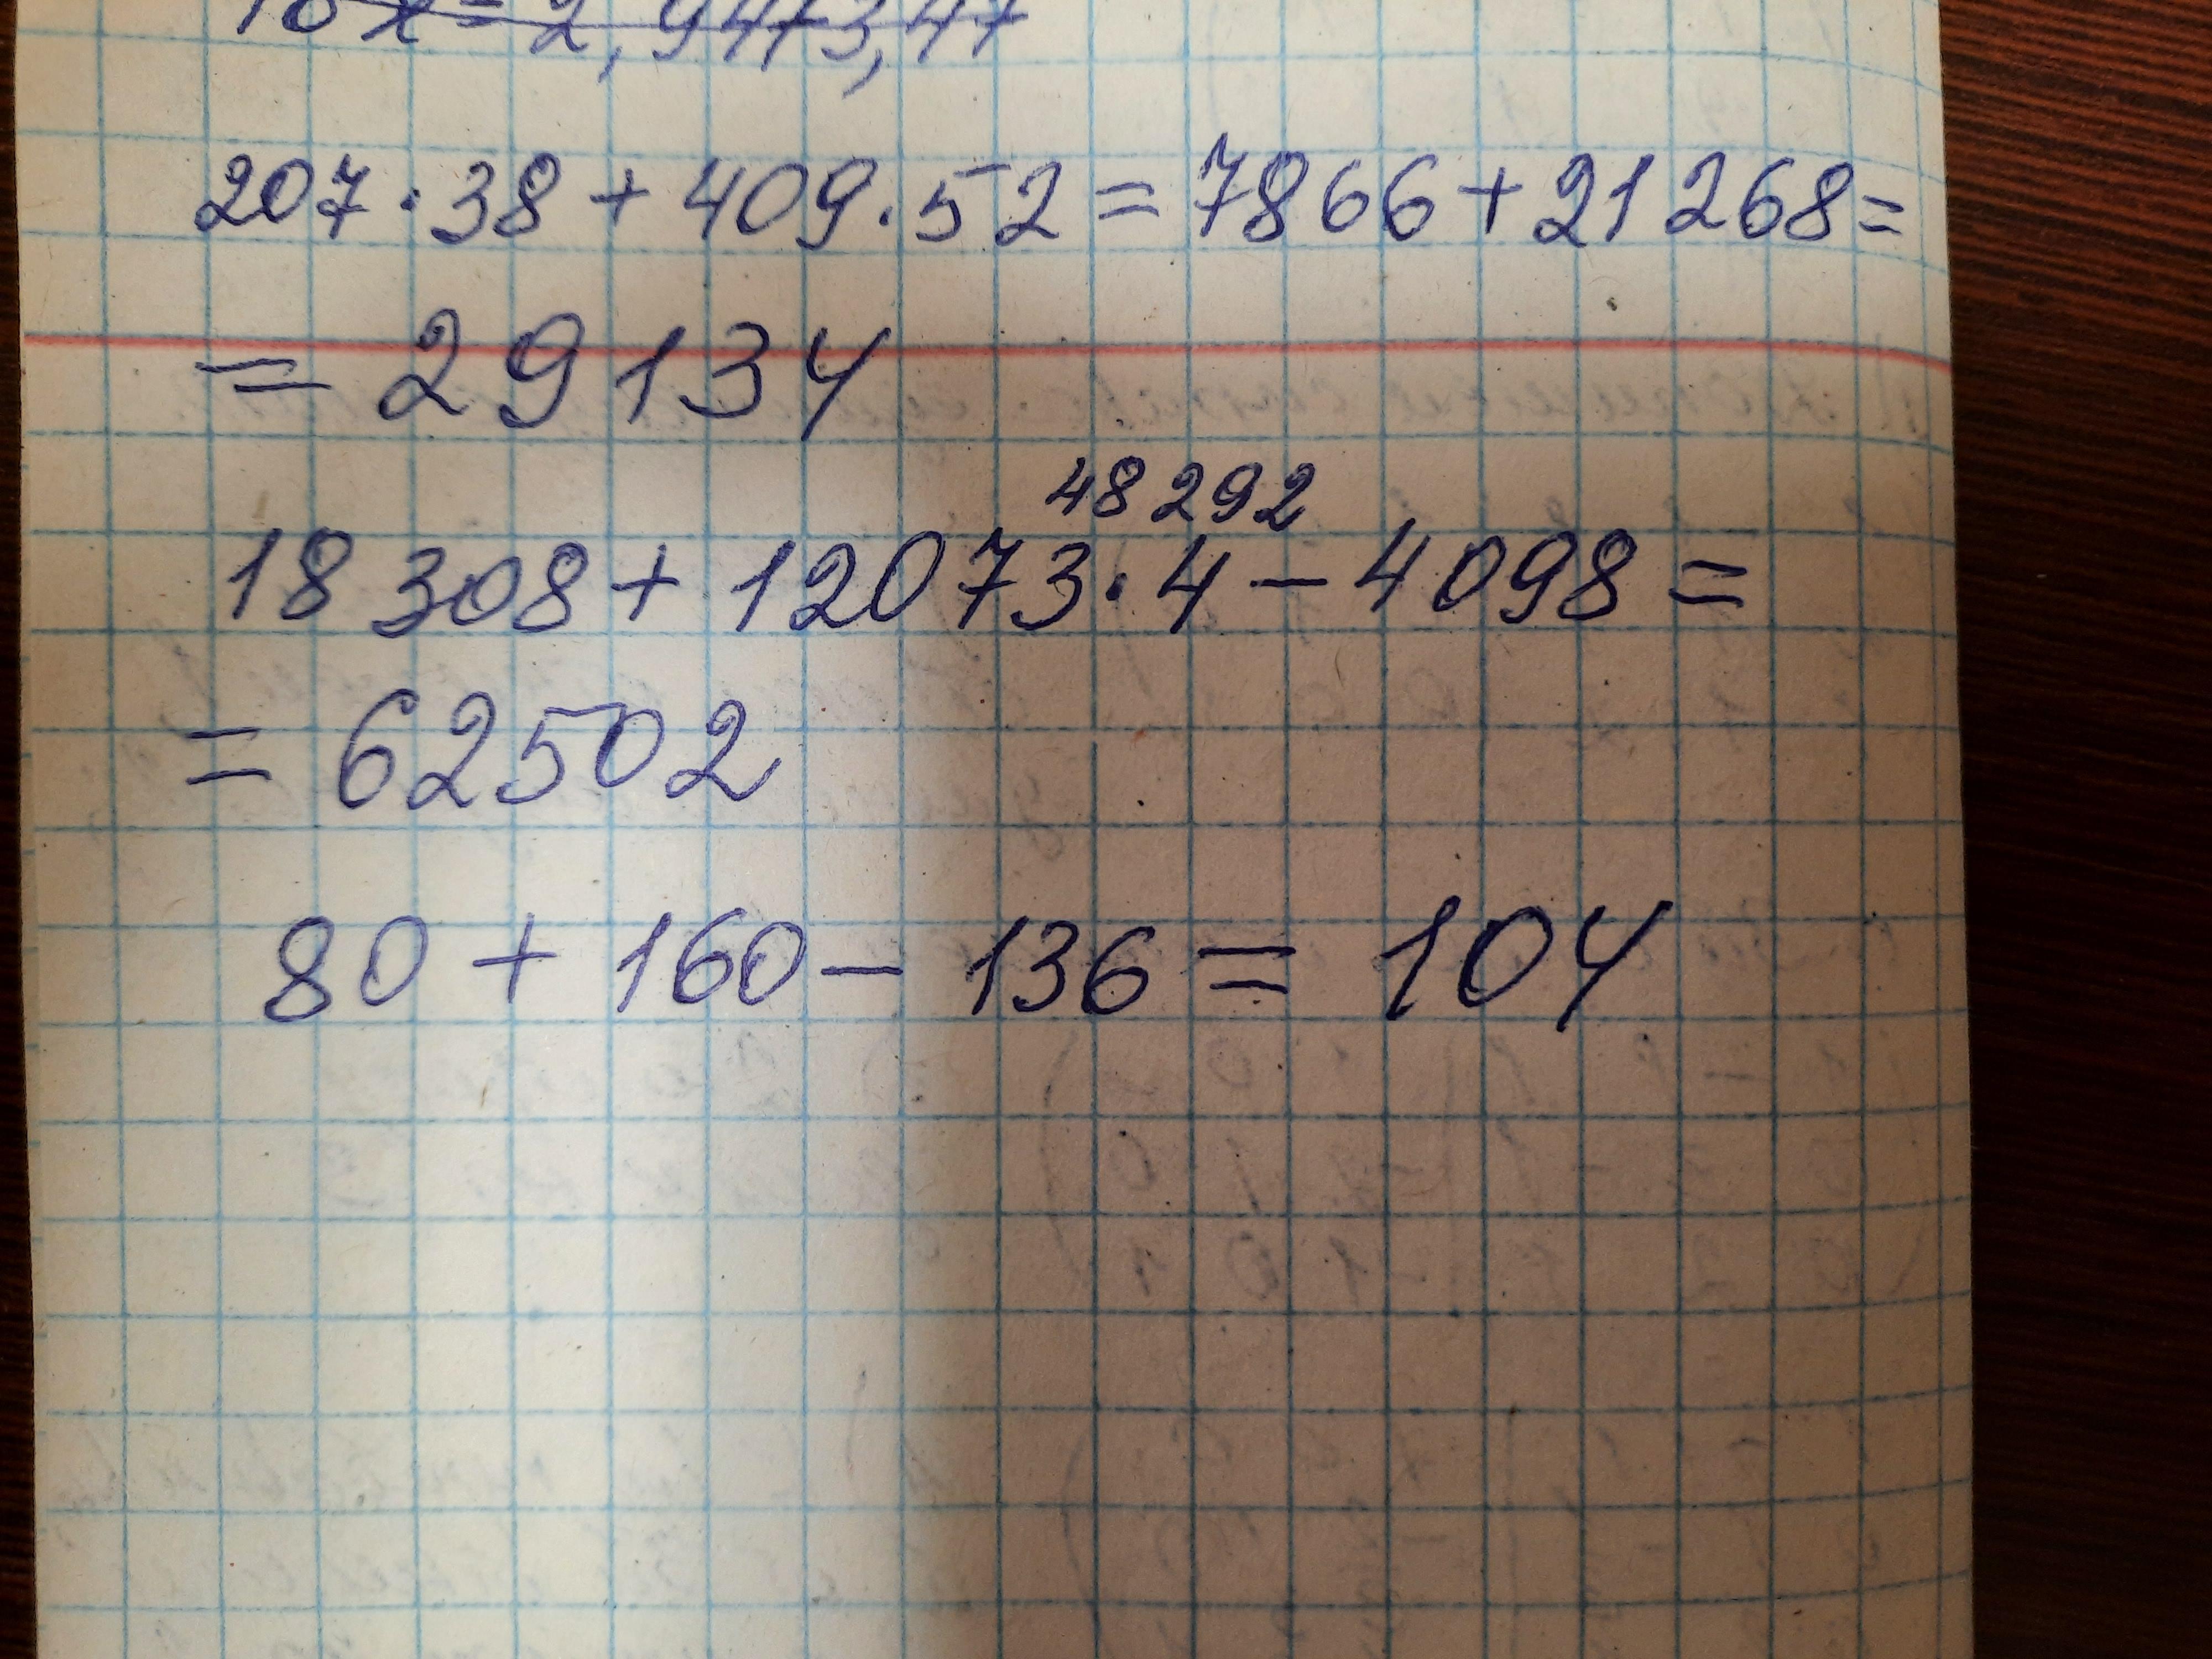 207·38+409·52=7866+21268=
=29134
48292
18308+12073·4-4098=
=62502
80+160-136=104